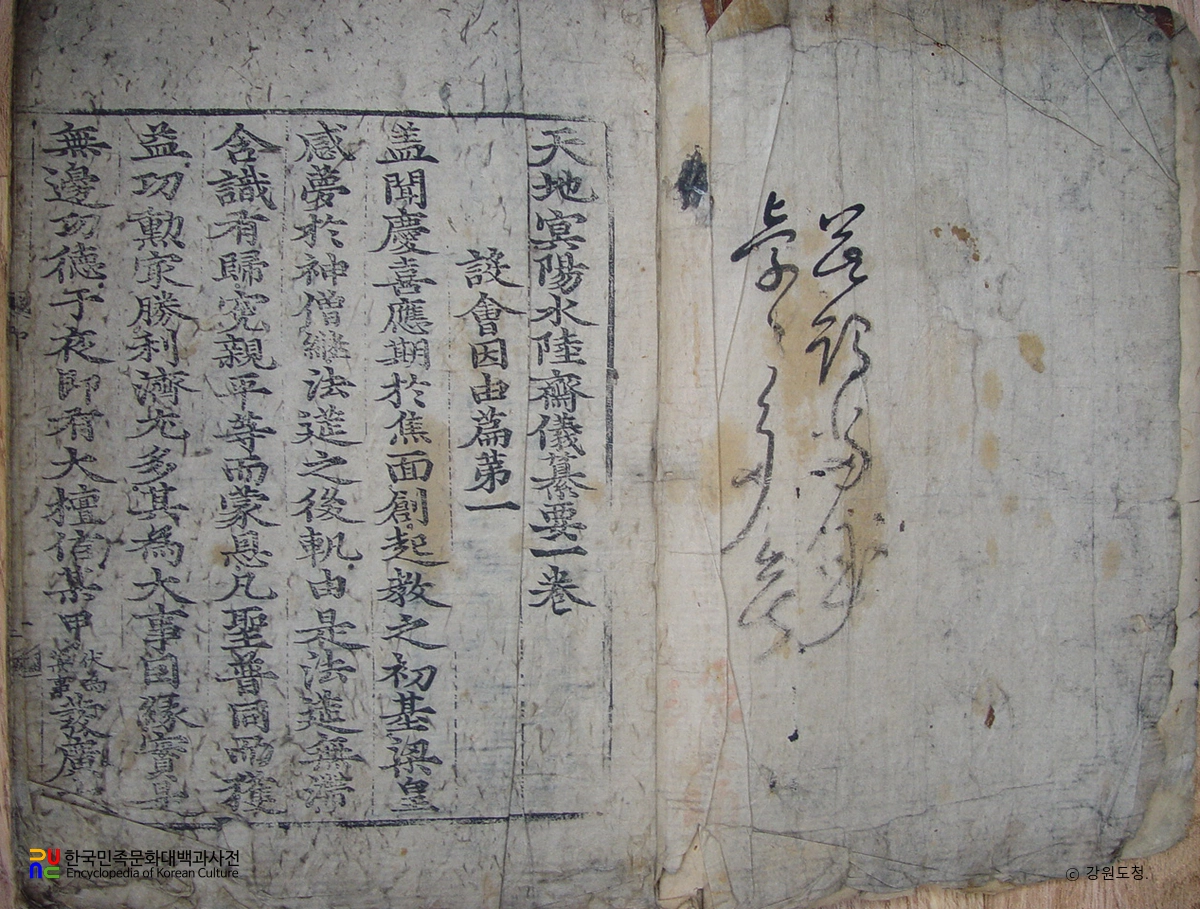 天地㝠陽水陸齋儀纂要一卷
設會因由篇第一
盖聞慶喜應期於焦面創起教之初基梁皇
感夢於神僧継法筵之後軌由是法筵無滯
含識有歸寃親平等而蒙恩凡聖普同而獲
益功勲㝡勝利濟尤多其為大事因緣實是
無邊功德今夜即有大檀信某甲伏為發廣
한국민족문화대백과사전
Encyclopedia of Korean Culture
© 강원도청.